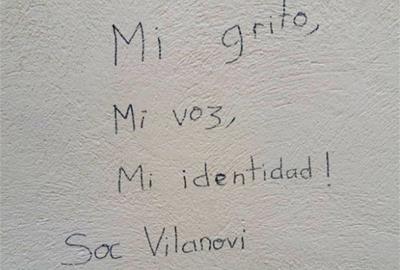 Mi grito,
Mi voz,
Mi identidad!
Soc Vilanovi